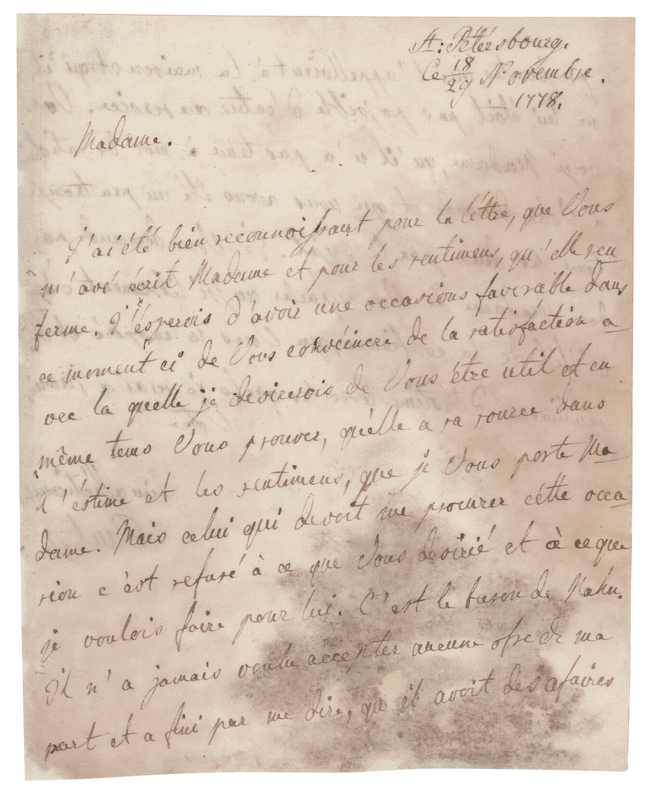 St: Petersbourg.
Ce 18/29 Novembre.
1778.
Madame.
J'ai été bien reconnoissant pour la léttre, que Vous
m'avé écrit Madame et pour les sentimens, qu'elle ren
ferme. J'ésperois d'avoir une occasions favorable dans
ce moment ci de Vous convéincre de la satisfaction a-
vec la quelle je desirerois de Vous étre util et en
même tems Vous prouver, qu'élle a sa source dans
l'éstime et les sentimens, que je Vous porte Ma-
dame. Mais celui qui devoit me procurer cétte occa-
sion c'ést refusé à ce que Vous desirié et à ce que
je voulois faire pour lui. C'est le baron de Nahu.
Il n'a jamais voulu accépter aucune ofre de ma
part et a fini par me dire, qu'il avoit des afaires